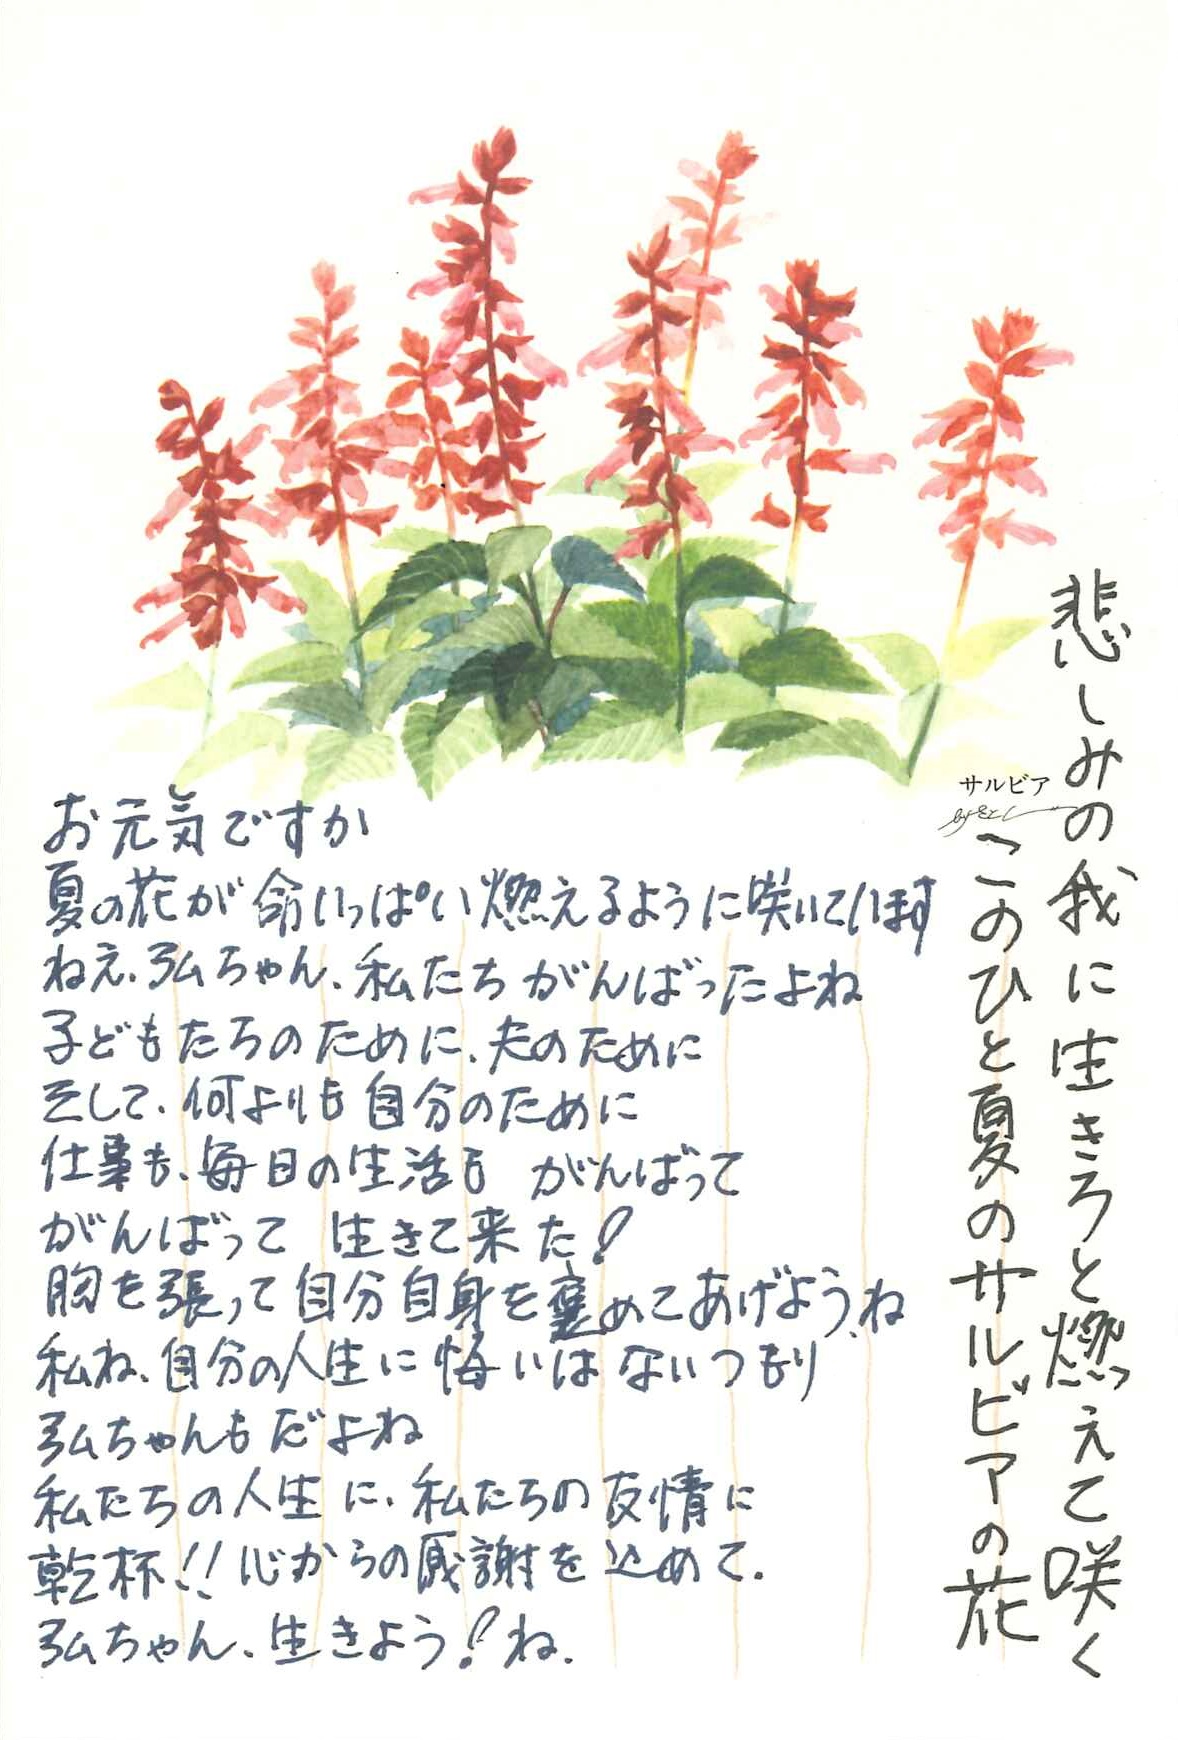 悲しみの我に生きろと燃えて咲く
このひと夏のサルビアの花
サルビア
お元気ですか
夏の花が命いっぱい燃えるように咲いています
ねえ、弘ちゃん、私たちがんばったよね
子どもたちのために、夫のために
そして、何よりも自分のために
仕事も、毎日の生活も がんばって
がんばって 生きて来た!
胸を張って自分自身を褒めてあげよう、ね
私ね、自分の人生に悔いはないつもり
弘ちゃんもだよね
私たちの人生に、私たちの友情に
乾杯!! 心からの感謝を込めて.
弘ちゃん、生きよう! ね.